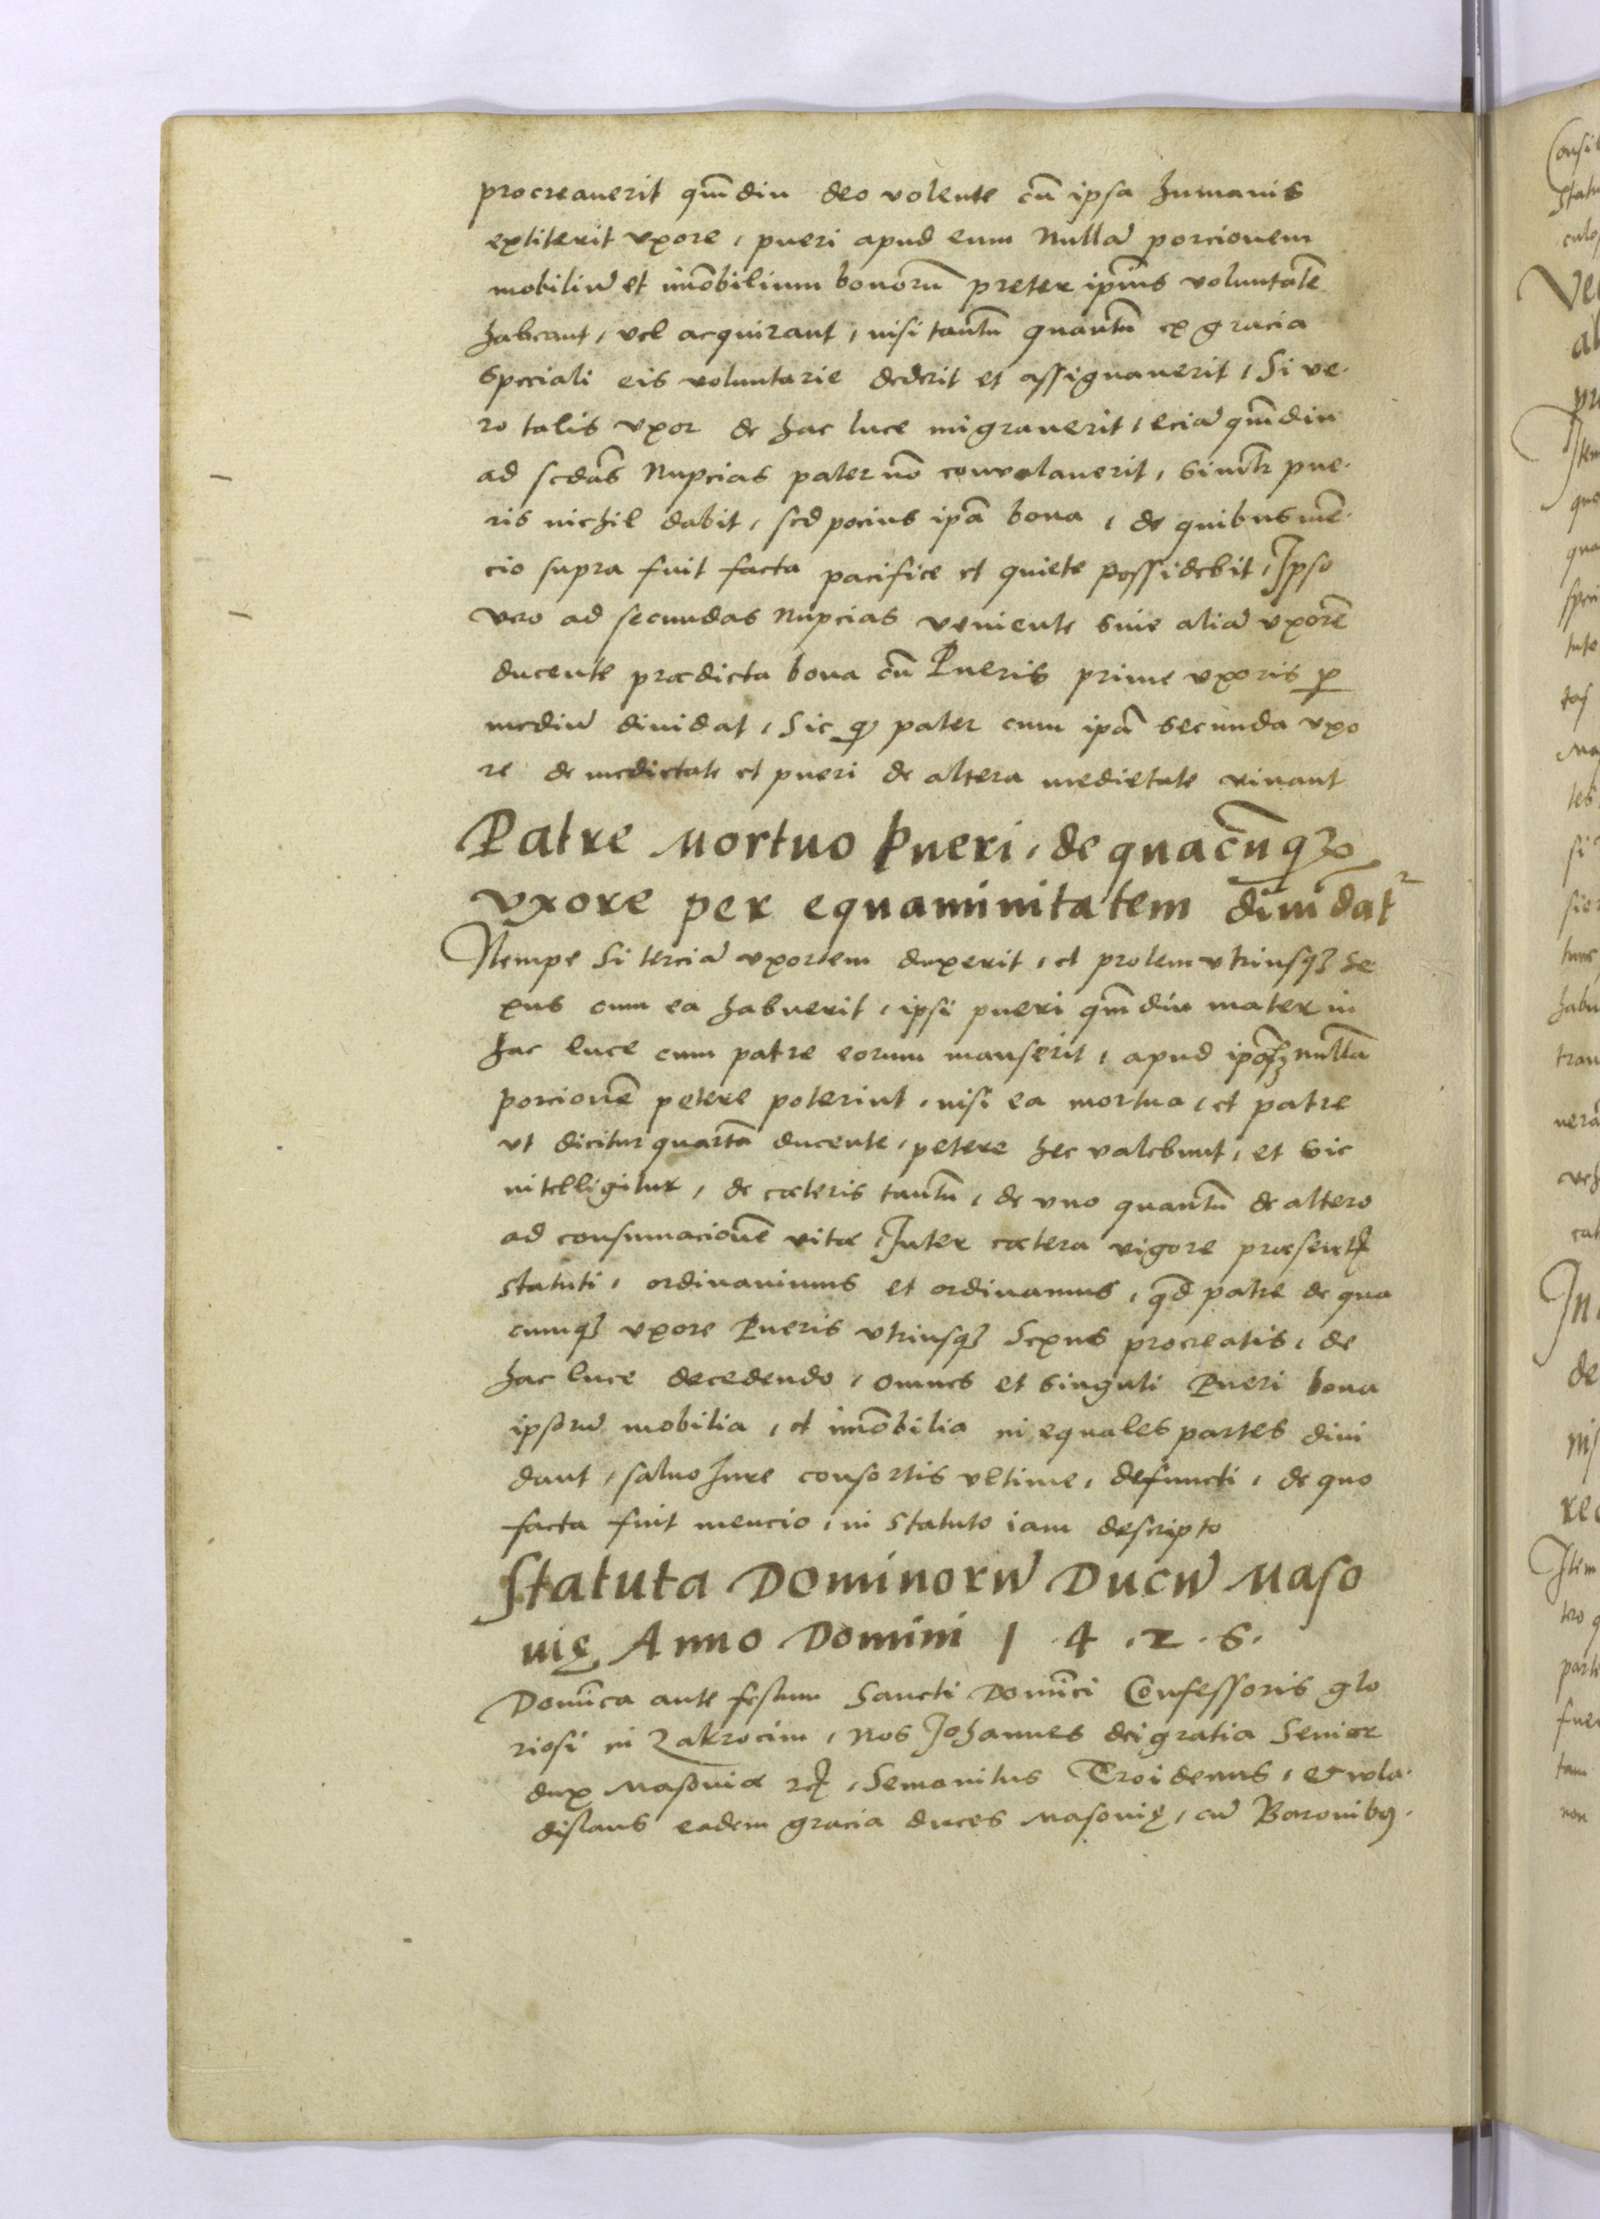 procreauerit qm̃diu deo volente cũ ipsa humanis
extiterit vxore, pueri apud eum Nullã porcionem
mobiliũ et im̃obilium bonorũ preter ipĩus voluntatẽ
habeant, vel acquirant, nisi tantũ quantũ ex gracia
speciali eis voluntarie dederit et assignauerit, Si ve-
ro talis vxor de hac luce migrauerit, eciã qm̃diu
ad scdãs Nupcias pater nõ conuolauerit, simłr pue-
ris nichil dabit, sed pocius ipã bona, de quibus mẽ-
cio supra fuit facta pacifice et quiete possidebit, Ipso
vero ad secundas Nupcias veniente siue aliã vxorẽ
ducente prædicta bona cũ Pueris prime vxoris ꝑ
mediũ diuidat, Sic ꝙ pater cum ipã secunda vxo
re de medietate et pueri de altera medietate viuant
Patre Mortuo Pueri, de quacũqꝫ
vxore per equanimitatem diuidat²
Nempe Si terciã vxorem duxerit, et prolem vtriusqꝫ se
xus cum ea habuerit, ipsi pueri qm̃diu mater in
hac luce cum patre eorum manserit, apud ipõꝝ nullã
porcionẽ petere poterint, nisi ea mortua, et patre
vt dicitur quartã ducente, petere hec valebunt, et sic
intelligitur, de cæteris tantũ, de vno quantũ de altero
ad consumacionẽ vitæ Inter cætera vigore præsentꝭ
statuti, ordinauimus et ordinamus, qđ patre de qua
cumqꝫ vxore Pueris vtriusqꝫ Sexus procreatis, de
hac luce decedendo, omnes et singuli Pueri bona
ipsorũ mobilia, et im̃obilia in equales partes diui
dant, saluo Iure consortis vltime, defuncti, de quo
facta fuit mencio, in statuto iam descripto
Statuta Dominorũ Ducũ Maso
uię Anno Domini 1.4.2.6.
Domĩca ante festum Sancti Domĩci Confessoris glo
riosi in Zakrocim, Nos Johannes dei gratia Senior
dux Masouiæ rꝭ, Semouitus Troidenus, et wla-
dislaus eadem gracia duces Masouię, cũ Baronibꝯ.